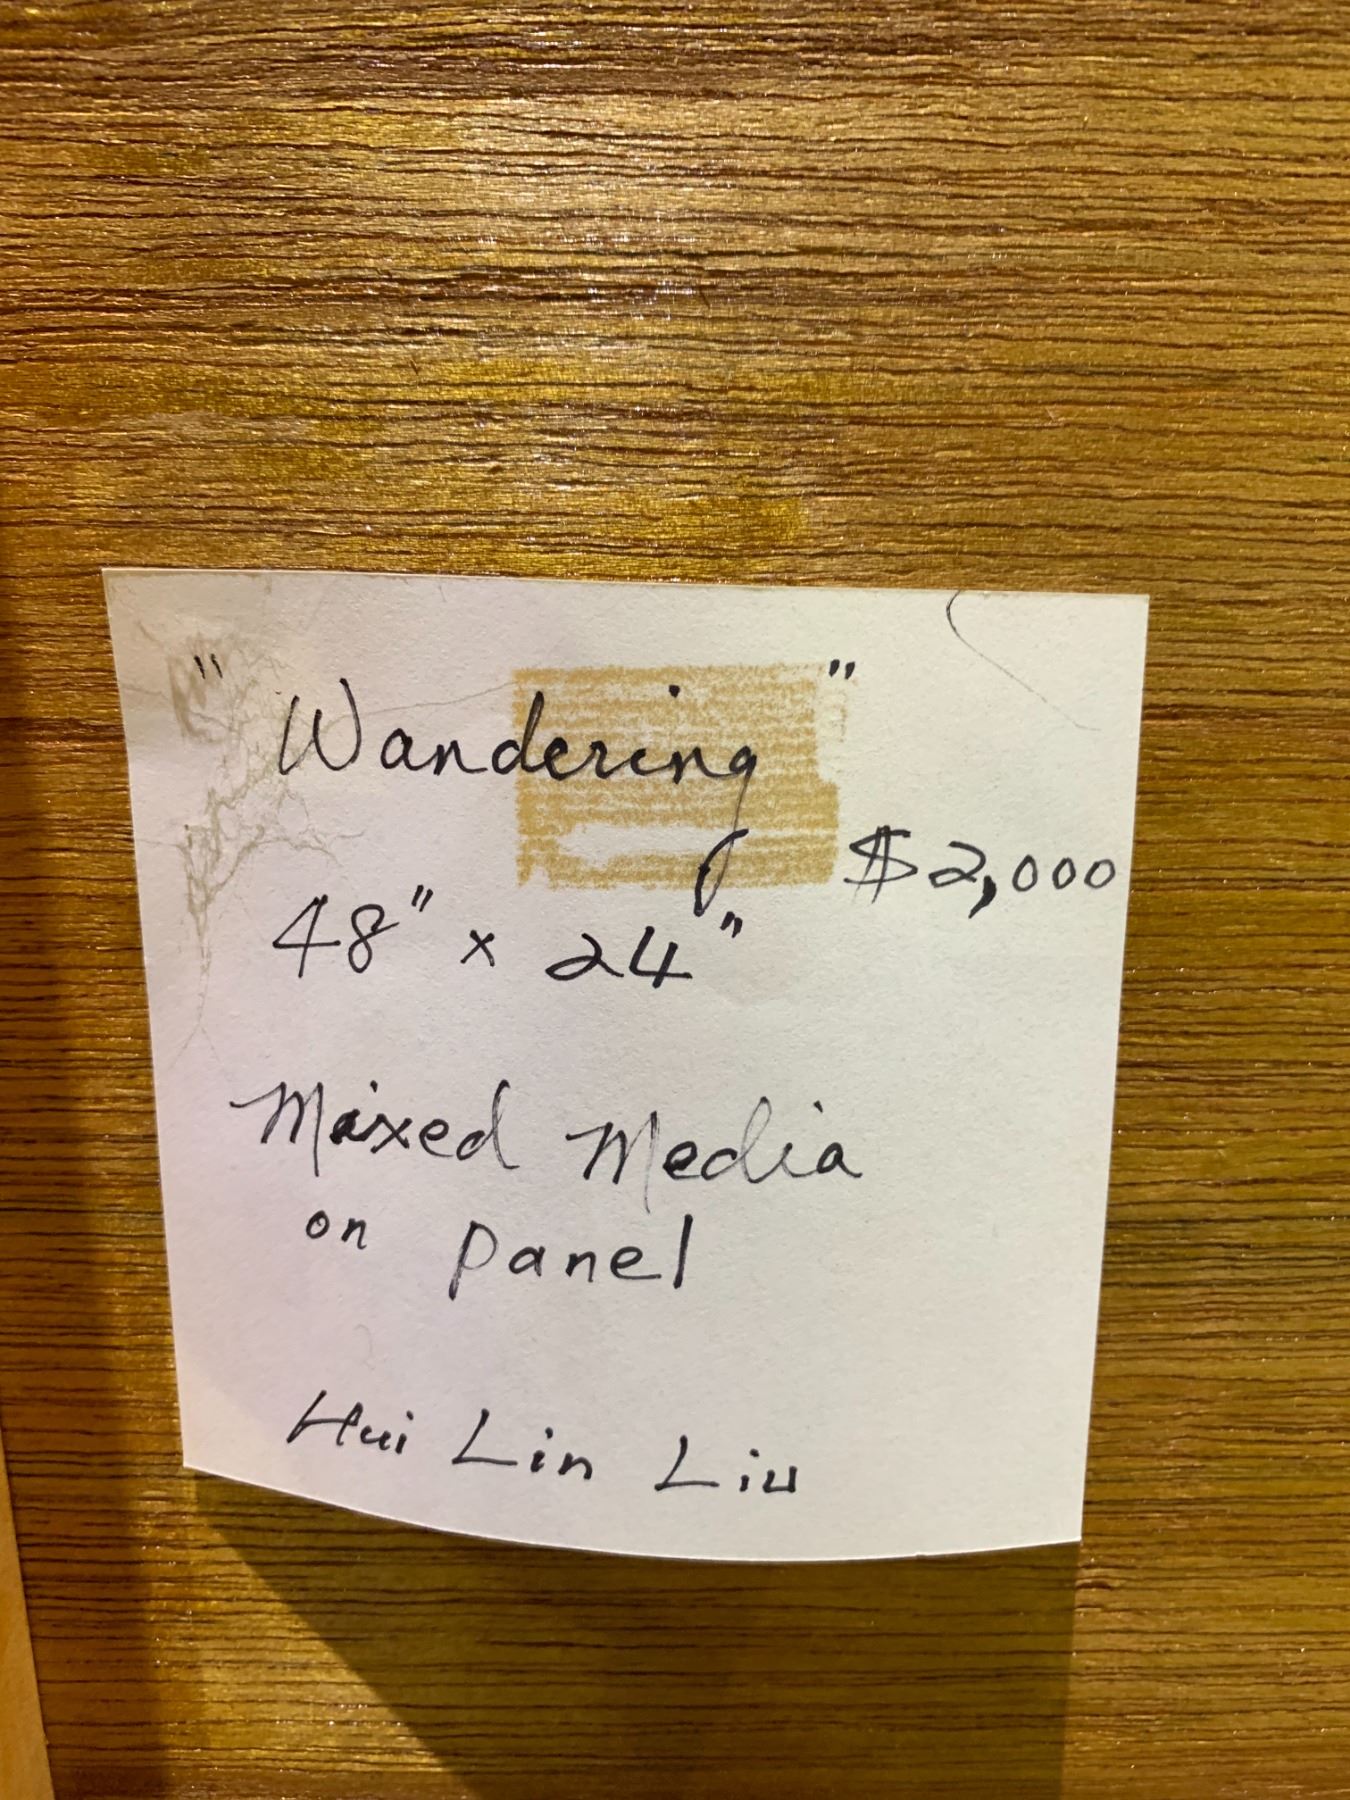 "Wandering"
$2,000
48" x 24"
Mixed Media
on panel
Hui Lin Liu